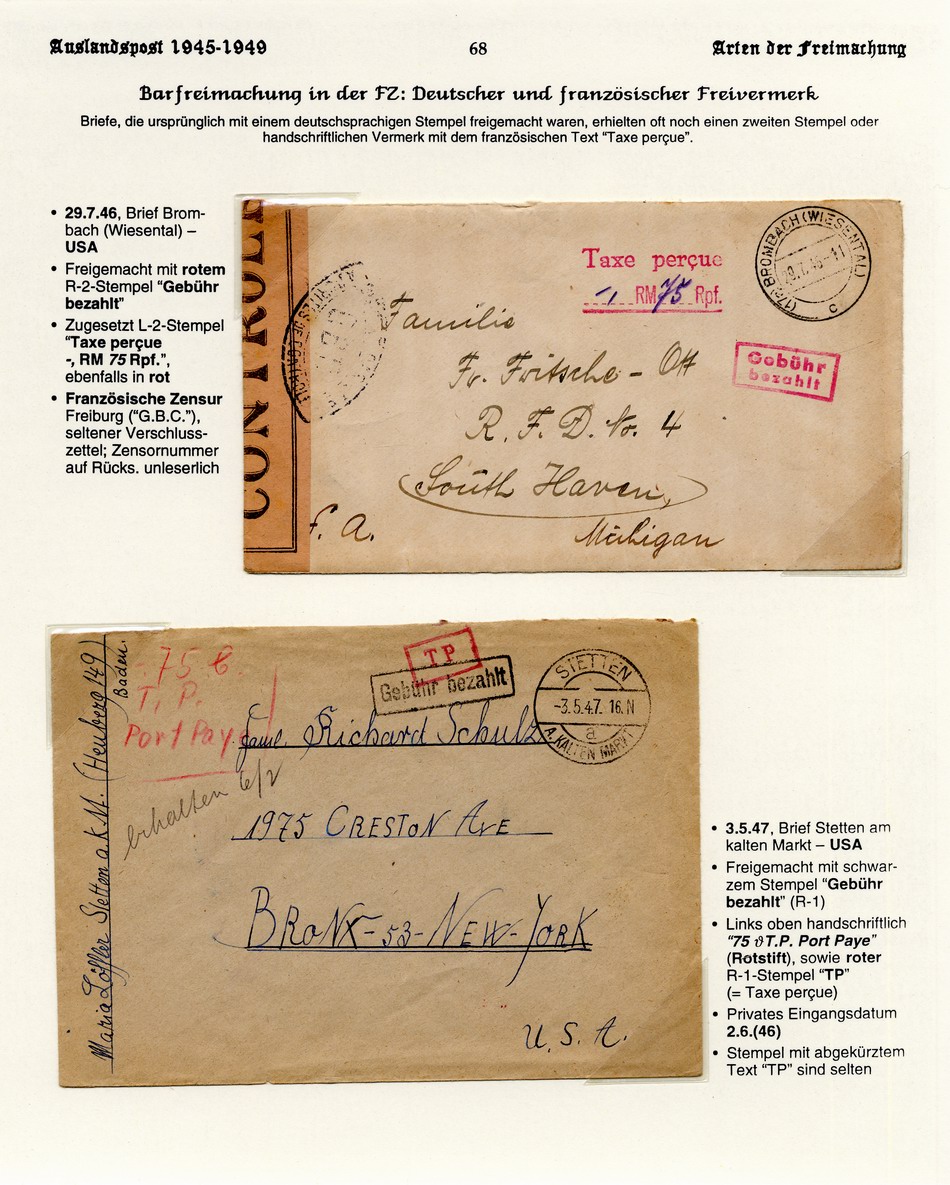 Auslandspost 1945-1949
68
Arten der Freimachung
Barfreimachung in der FZ: Deutscher und französischer Freivermerk
Briefe, die ursprünglich mit einem deutschsprachigen Stempel freigemacht waren, erhielten oft noch einen zweiten Stempel oder
handschriftlichen Vermerk mit dem französischen Text “Taxe perçue”.
• 29.7.46, Brief Brom-
bach (Wiesental) –
USA
• Freigemacht mit rotem
R-2-Stempel “Gebühr
bezahlt”
• Zugesetzt L-2-Stempel
“Taxe perçue
-, RM 75 Rpf.”,
ebenfalls in rot
• Französische Zensur
Freiburg (“G.B.C.”),
seltener Verschluss-
zettel; Zensornummer
auf Rücks. unleserlich
Taxe perçue
-, RM 75 Rpf.
(17b) BROMBACH (WIESENTAL)
29.7.46-11
c
Gebühr
bezahlt
Familie
Fr. Fritsche - Ott
R. F. D. No. 4
South Haven,
Michigan
. A.
- 75 
T. P.
Port Paye
TP
Gebühr bezahlt
STETTEN
-3.5.47. 16.N
a
A. KALTEN MARKT
Maria Löffler Stetten a. k. M. (Heuberg 149)
Baden.
Faml. Richard Schulz
erhalten 6/2
1975 CRESTON AVE
BRONX-53-NEW-YORK
U. S. A.
• 3.5.47, Brief Stetten am
kalten Markt – USA
• Freigemacht mit schwar-
zem Stempel “Gebühr
bezahlt” (R-1)
• Links oben handschriftlich
“75 ₰ T.P. Port Paye”
(Rotstift), sowie roter
R-1-Stempel “TP”
(= Taxe perçue)
• Privates Eingangsdatum
2.6.(46)
• Stempel mit abgekürztem
Text “TP” sind selten